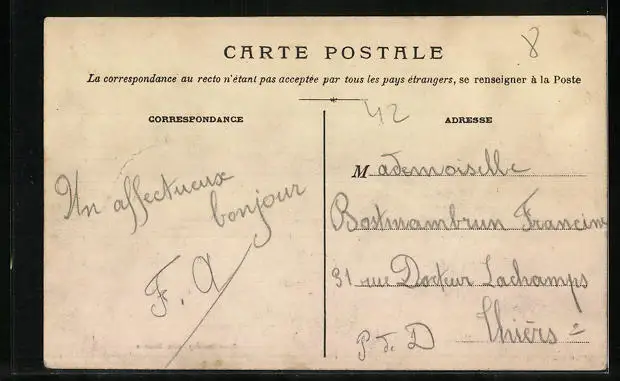 8
CARTE POSTALE
La correspondance au recto n'étant pas acceptée par tous les pays étrangers, se renseigner à la Poste
42
CORRESPONDANCE
Un affectueux
bonjour
F. A
ADRESSE
Mademoiselle
Bostmambrun Francine
31 rue Docteur Lachamps
Thiers
P. de D